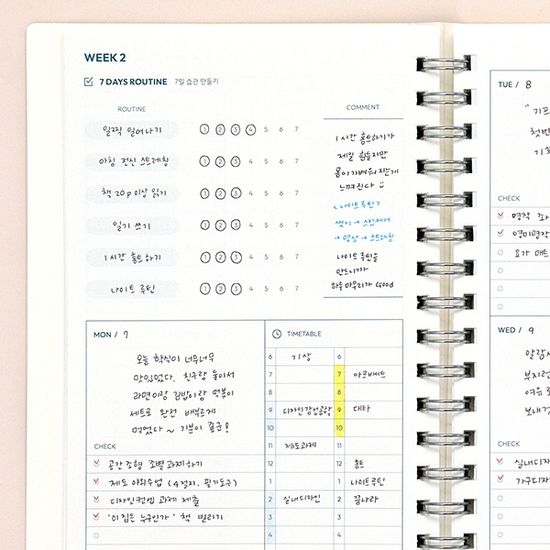 WEEK 2
7 DAYS ROUTINE 7일 습관 만들기
ROUTINE
COMMENT
일찍 일어나기 1 2 3 4 5 6 7
아침 전신 스트레칭 1 2 3 4 5 6 7
책 20p 이상 읽기 1 2 3 4 5 6 7
일기 쓰기 1 2 3 4 5 6 7
1시간 홈트하기 1 2 3 4 5 6 7
나이트 루틴 1 2 3 4 5 6 7
1시간 홈트하기가
제일 힘들지만
몸이 가벼워진게
느껴진다
<나이트루틴>
씻기 → 스킨케어
→ 명상 → 스트레칭
나이트 루틴을
만드니까
하루 마무리가 Good
MON / 7
오늘 학식이 너무너무
맛있었다. 친구랑 둘이서
라면이랑 김밥이랑 떡볶이
세트로 완전 배부르게
먹었다 ~ 기분이 최고!
CHECK
공간조형 조별 과제하기
제도 야외수업 (4절지, 필기도구)
디자인컨셉 과제 제출
'이 집은 누구인가' 책 빌리기
TIMETABLE
6 기상 6
7 7 아르바이트
8 8
9 9 대타
10 10
11 제도과제 11
12 12 홈트
1 1 나이트루틴
2 실내디자인 2 꿈나라
3 3
4 4
TUE / 8
CHECK
WED / 9
CHECK